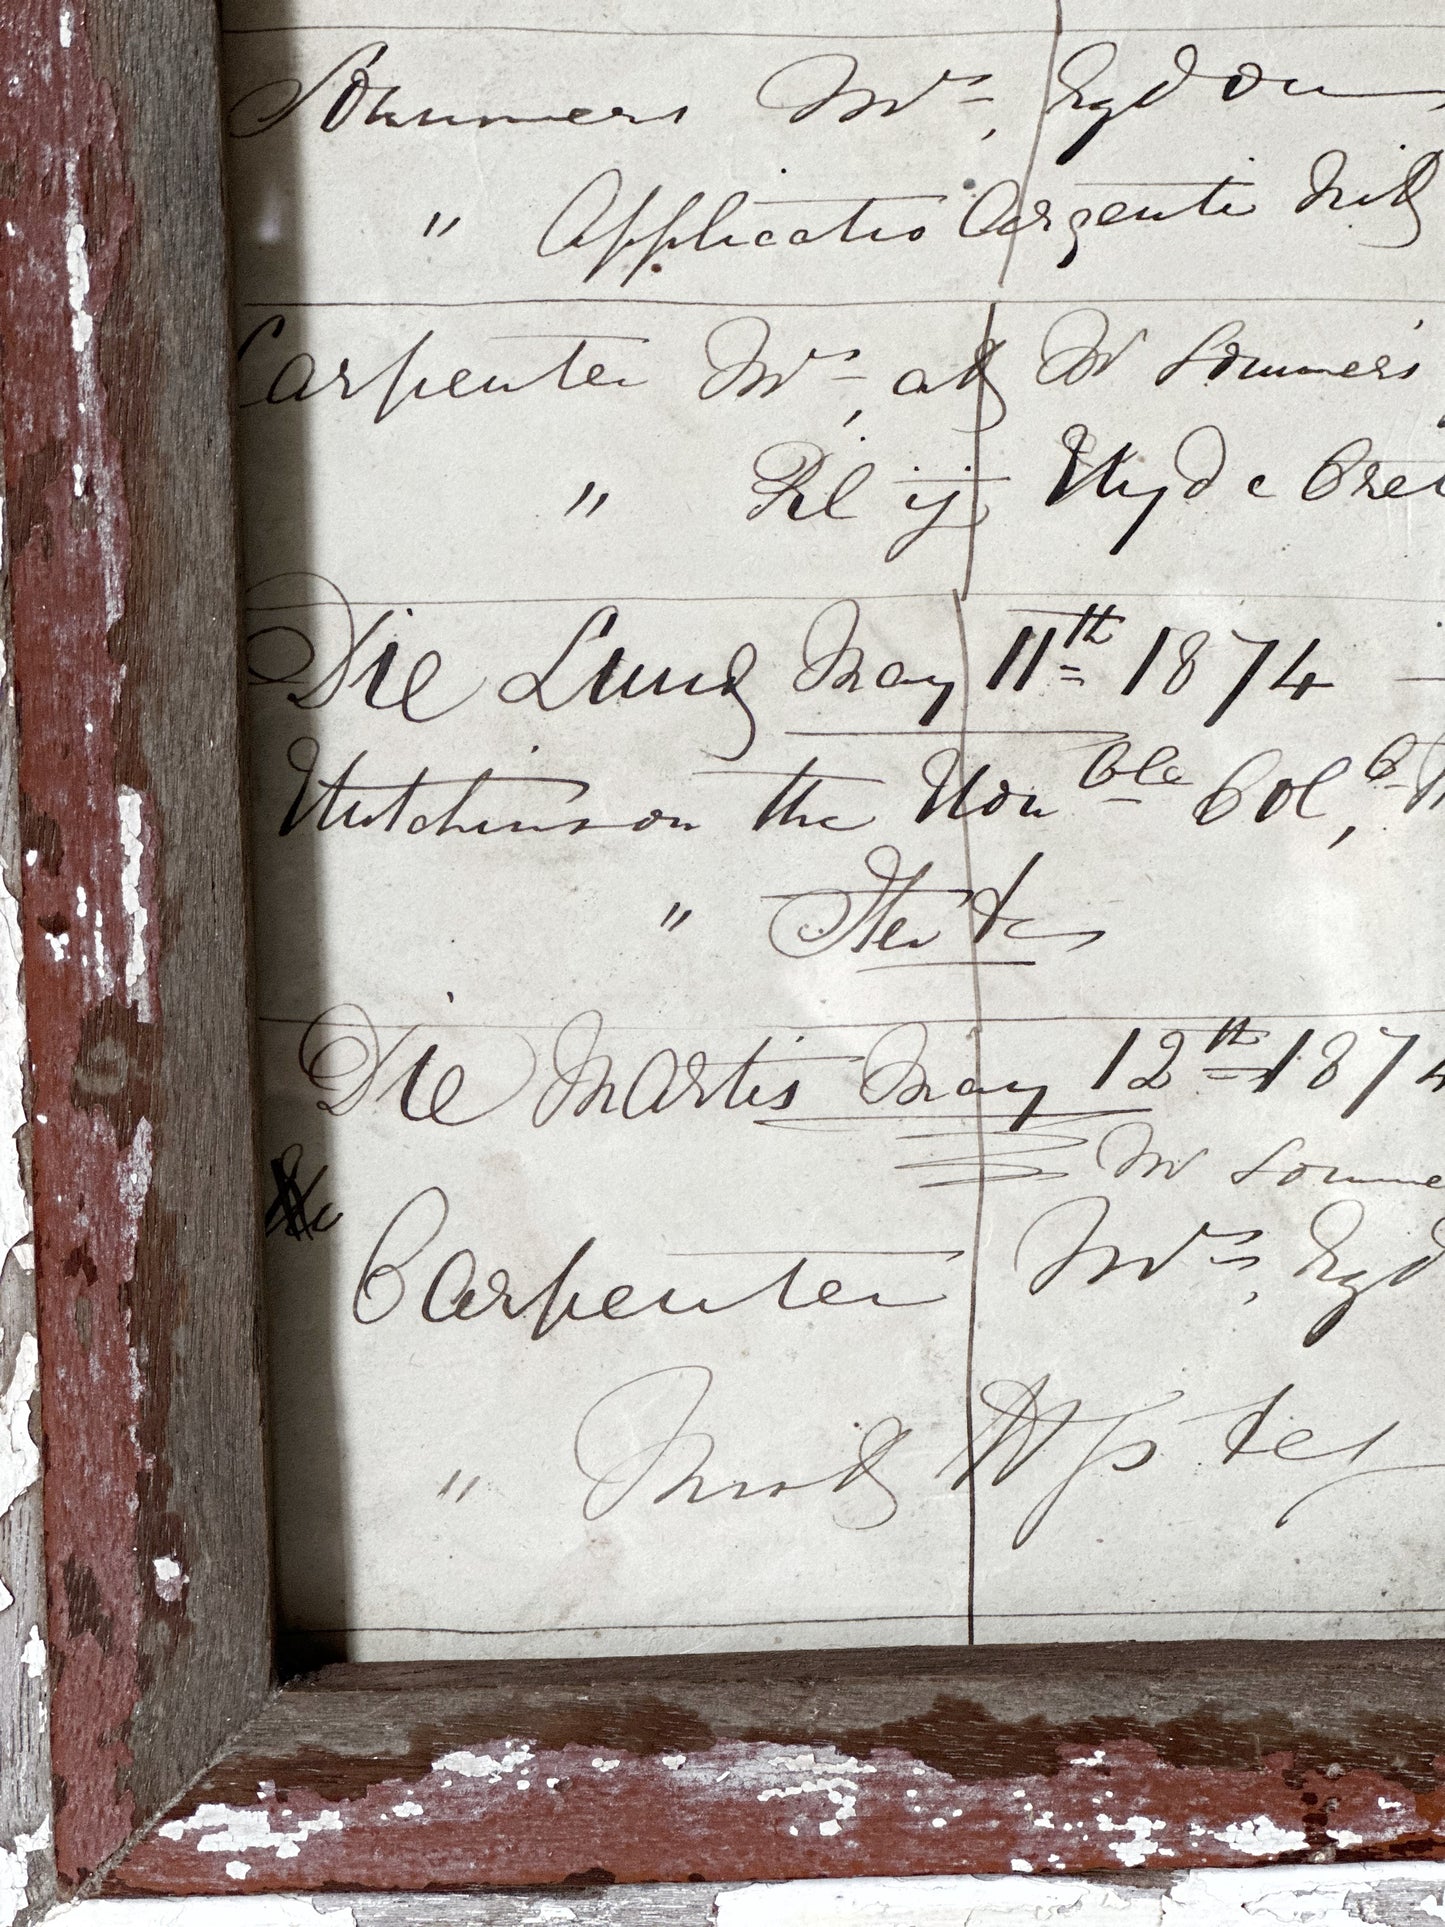 Sommers Mrs, Egdon
" Applicatio Argenti Nit
Carpenter Mrs, at Mr Sommers'
" Pil ij Hyde
Die Lunæ May 11th 1874
Hutchinson the Honble Col,
"
Die Martis May 12th 1874
Mr Somme
Carpenter Mrs, Egd
" Mist